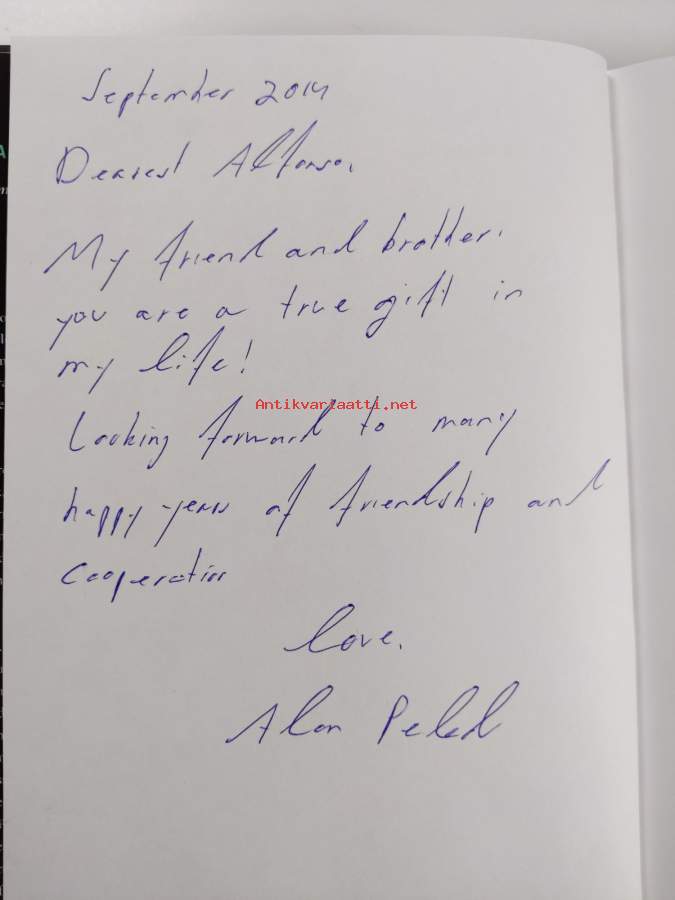 September 2014
Dearest Alfonso,
My friend and brother,
you are a true gift in
my life!
Antikvariaatti.net
Looking forward to many
happy years of friendship and
cooperation
Love,
Alon Peled